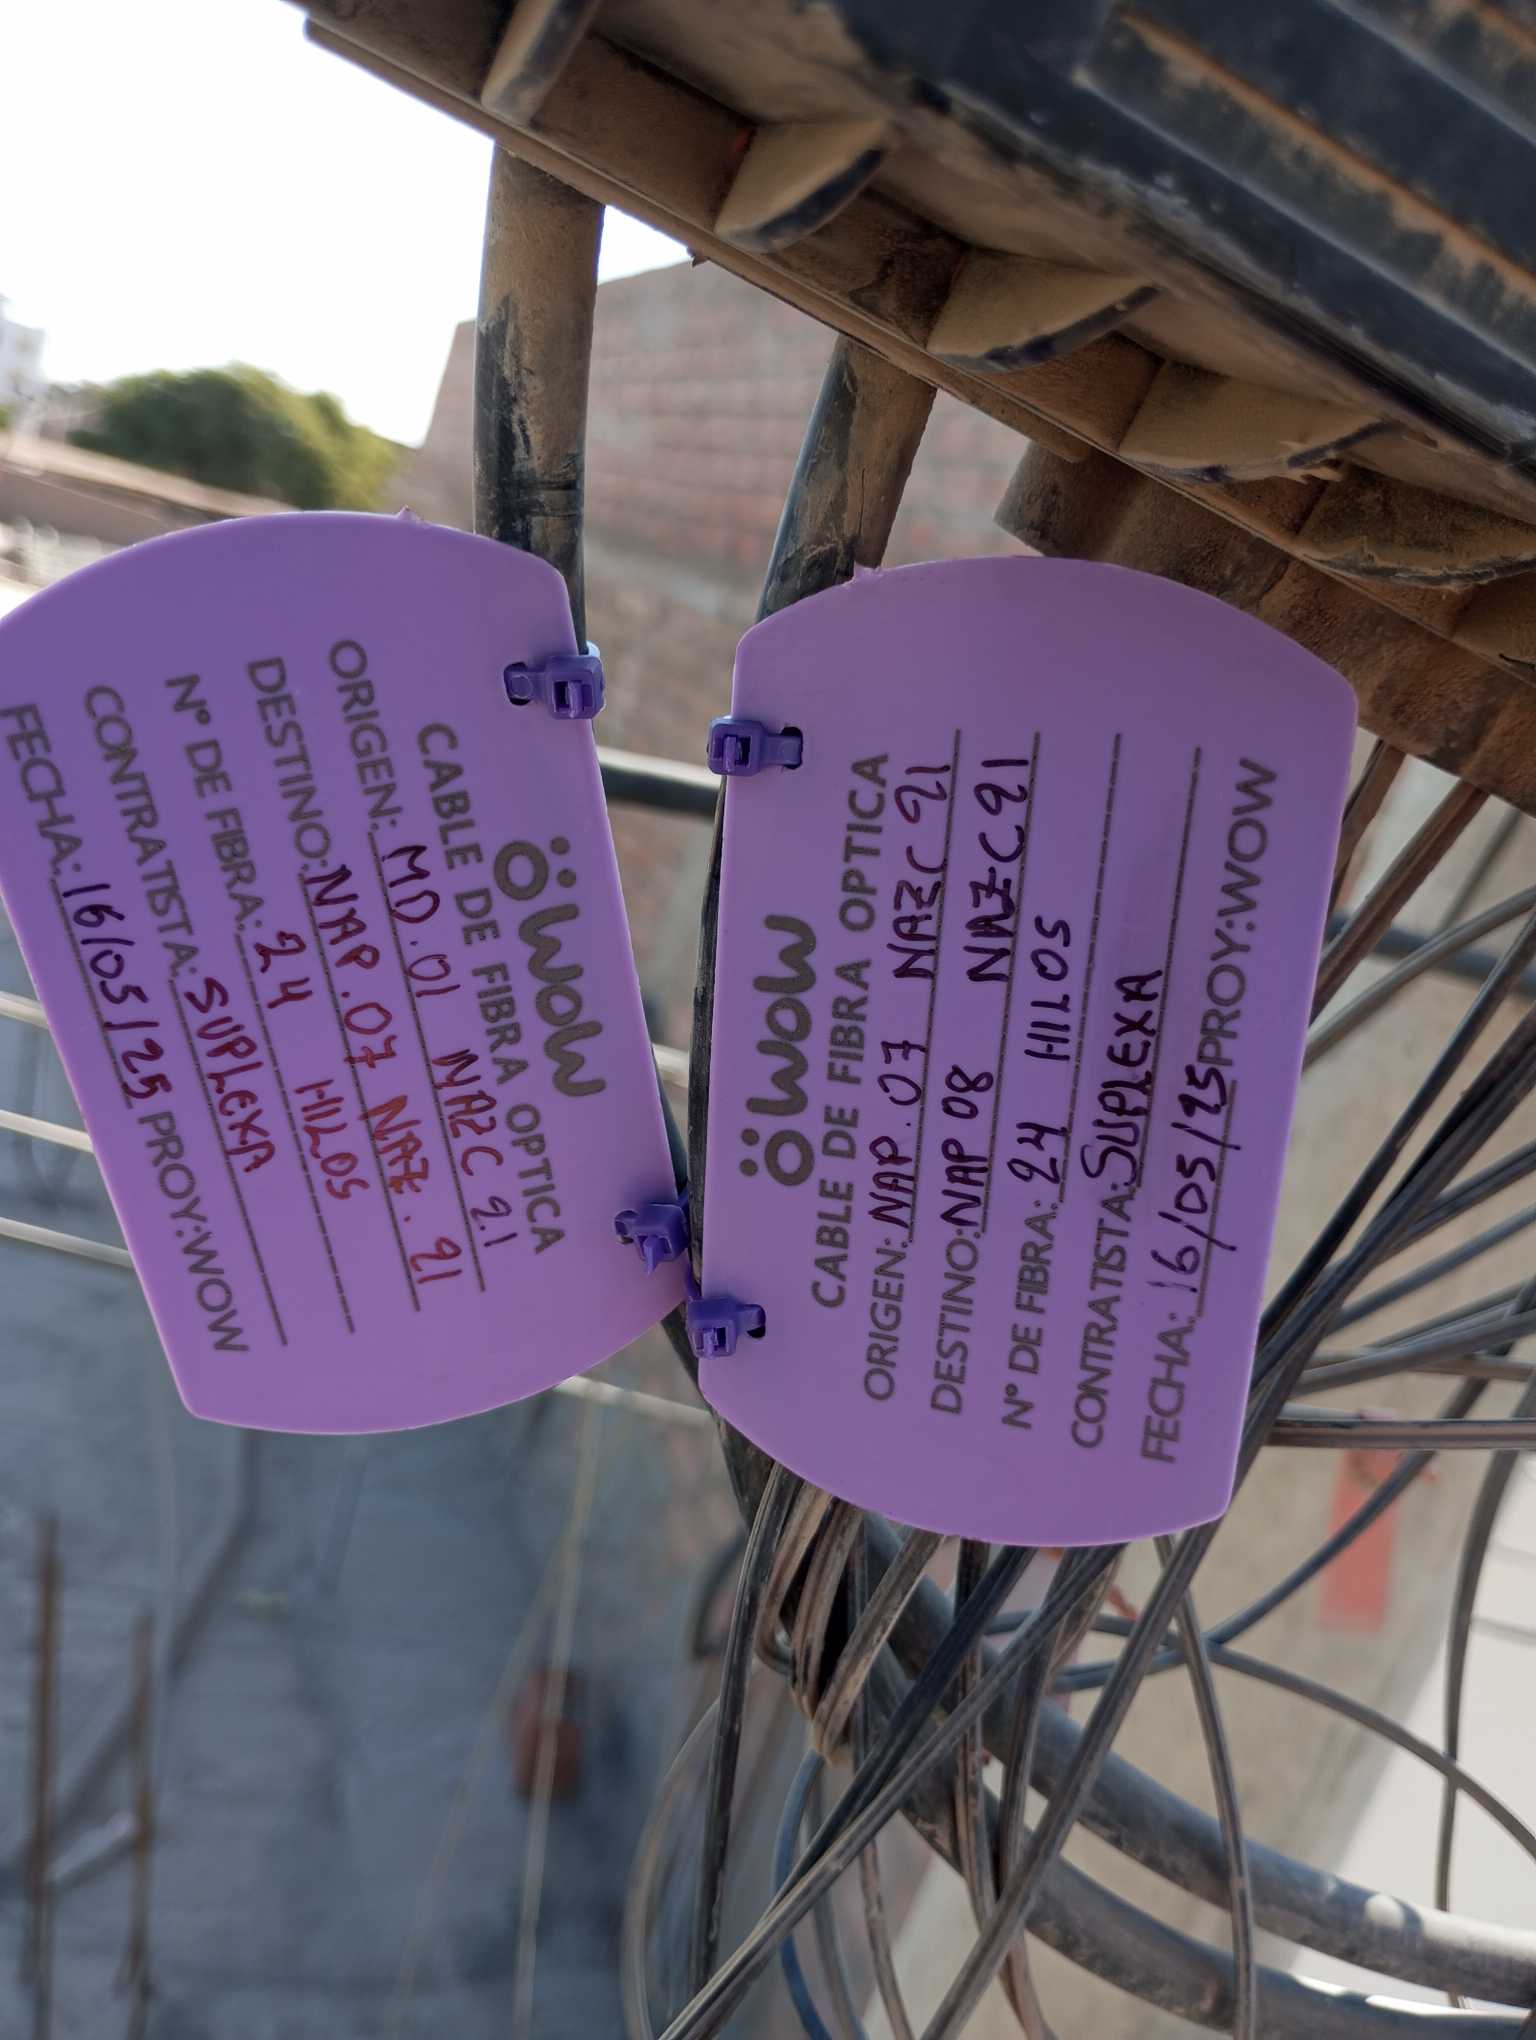 wow
CABLE DE FIBRA OPTICA
ORIGEN: MD.01 NAZC 21
DESTINO: NAP.07 NAZ. 21
N° DE FIBRA: 24 HILOS
CONTRATISTA: SUPLEXA
FECHA: 16/05/25 PROY:WOW
wow
CABLE DE FIBRA OPTICA
ORIGEN: NAP.07 NAZC 21
DESTINO: NAP 08 NAZC 21
N° DE FIBRA: 24 HILOS
CONTRATISTA: SUPLEXA
FECHA: 16/05/25 PROY:WOW